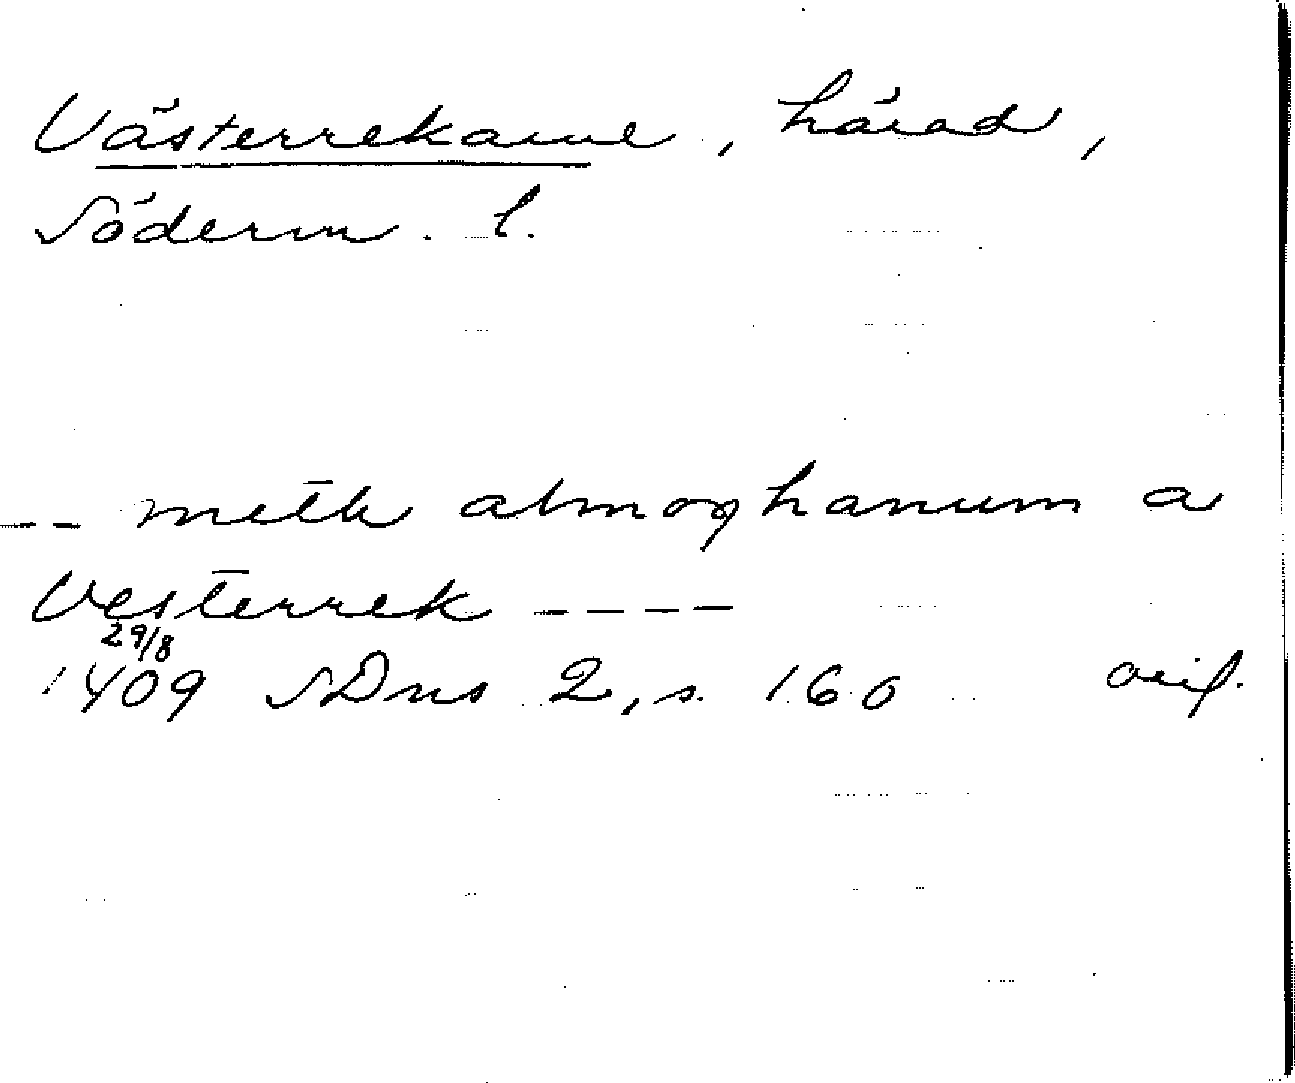 Västerrekarne, härad,
Söderm. l.
-- meth almoghanum a
Vesterrek ----
29/8
1409 SDns 2, s. 160 orig.